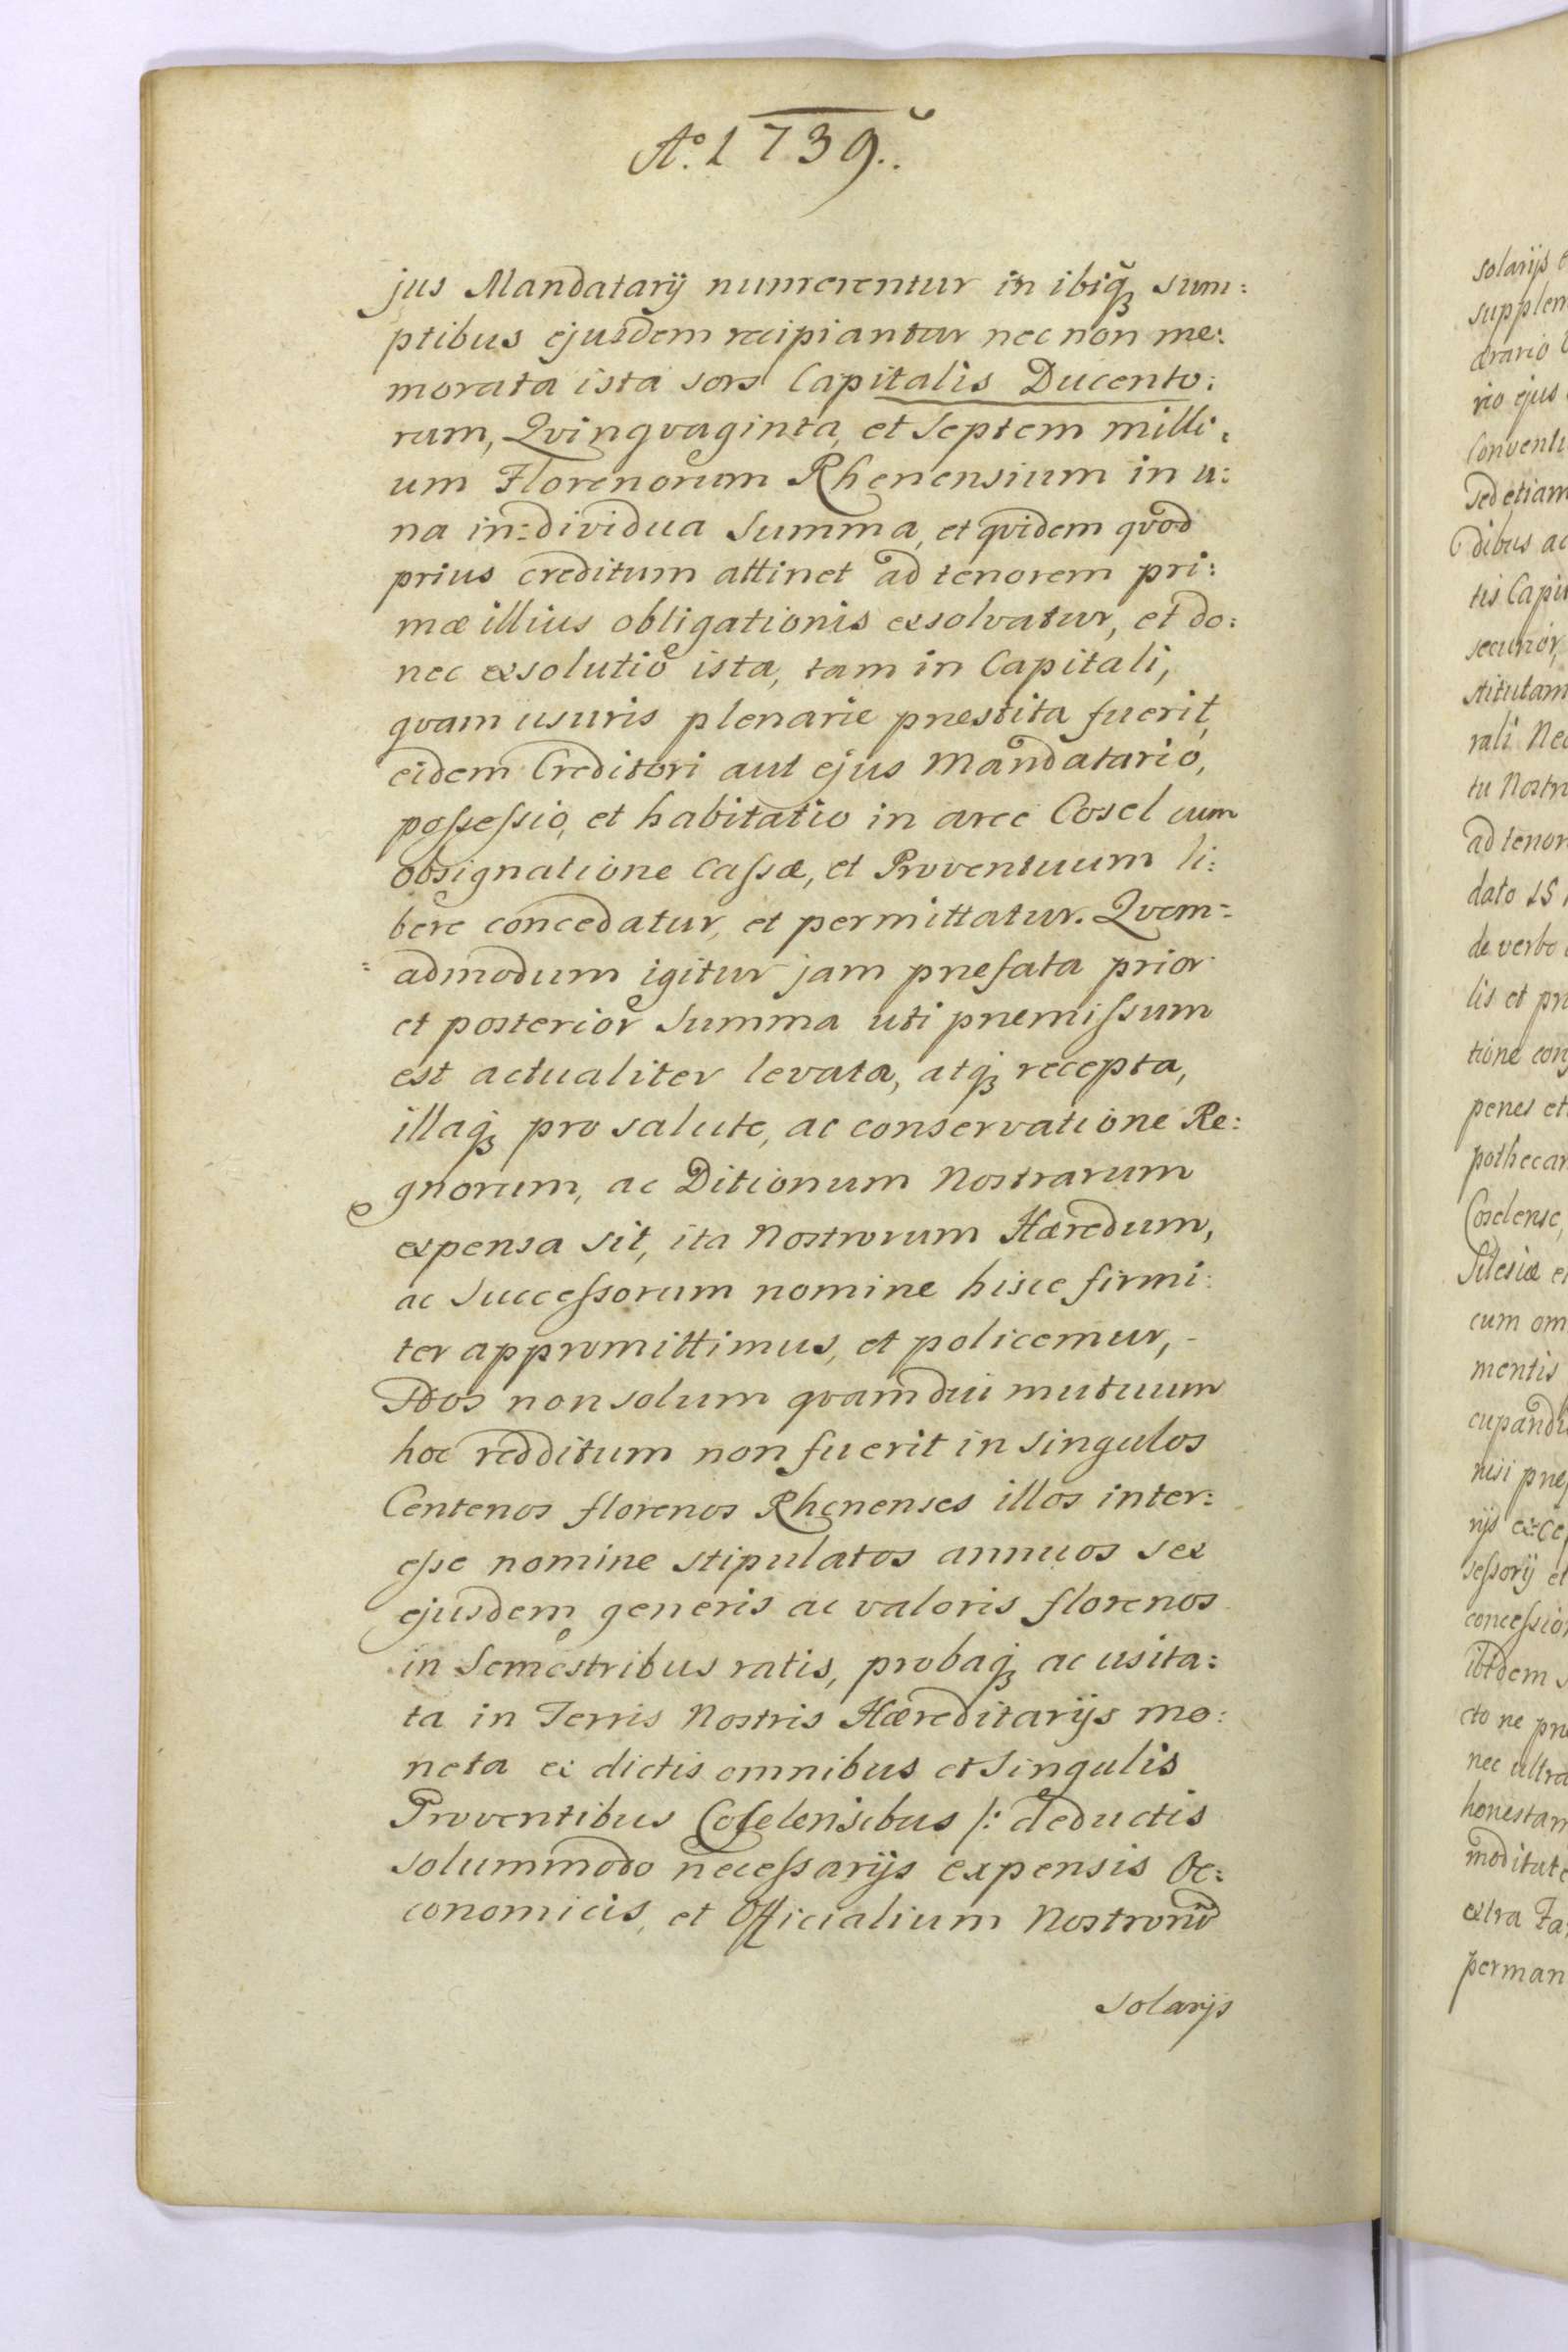 Aº. 1739..
jus Mandatarij numerentur in ibiq3 sum:
ptibus ejusdem recipiantur nec non me:
morata ista sors Capitalis Ducento:
rum, Qvinqvaginta, et Septem milli:
um Florenorum Rhenensium in u:
na in=dividua Summa, et qvidem qvod
prius creditum attinet ad tenorem pri:
mæ illius obligationis exsolvatur, et do:
nec exsolutio ista, tam in Capitali,
qvam usuris plenarie præstita fuerit,
eidem Creditori aut ejus Mandatario,
possessio, et habitatio in arce Cosel cum
obsignatione Cassæ, et Proventuum li:
bere concedatur, et permittatur. Qvem=
=admodum igitur jam præfata prior
et posterior Summa uti præmissum
est actualiter levata, atq3 recepta,
illaq3 pro salute, ac conservatione Re:
gnorum, ac Ditionum Nostrarum
expensa sit, ita Nostrorum Hæredum,
ac Successorum nomine hisce firmi:
ter appromittimus, et policemur, -
Nos non solum qvamdiu mutuum
hoc redditum non fuerit in singulos
Centenos florenos Rhenenses illos inter:
esse nomine stipulatos annuos sex
ejusdem generis ac valoris florenos
in Semestribus ratis, probaq3 ac usita:
ta in Terris Nostris Hæreditarijs mo:
neta ex dictis omnibus et Singulis
Proventibus Coselensibus /: deductis
solummodo necessarijs expensis Oe:
conomicis, et Officialium Nostrorũ
solarijs
solarijs
supplem
ærario
rio ejus
Conventi
sed etiam
dibus ac
tis Capi
securior,
stitutam
rali Nec
tu Nostr
ad tenor
dato 15
de verbo
lis et pr
tione con
penes et
pothecar
Coselense,
Silesiæ e
cum om
mentis
cupandi
nisi præ
rijs exce
sessorij et
concessio
ibidem s
cto ne pr
nec ultra
honestam
moditate
extra Fa
perman